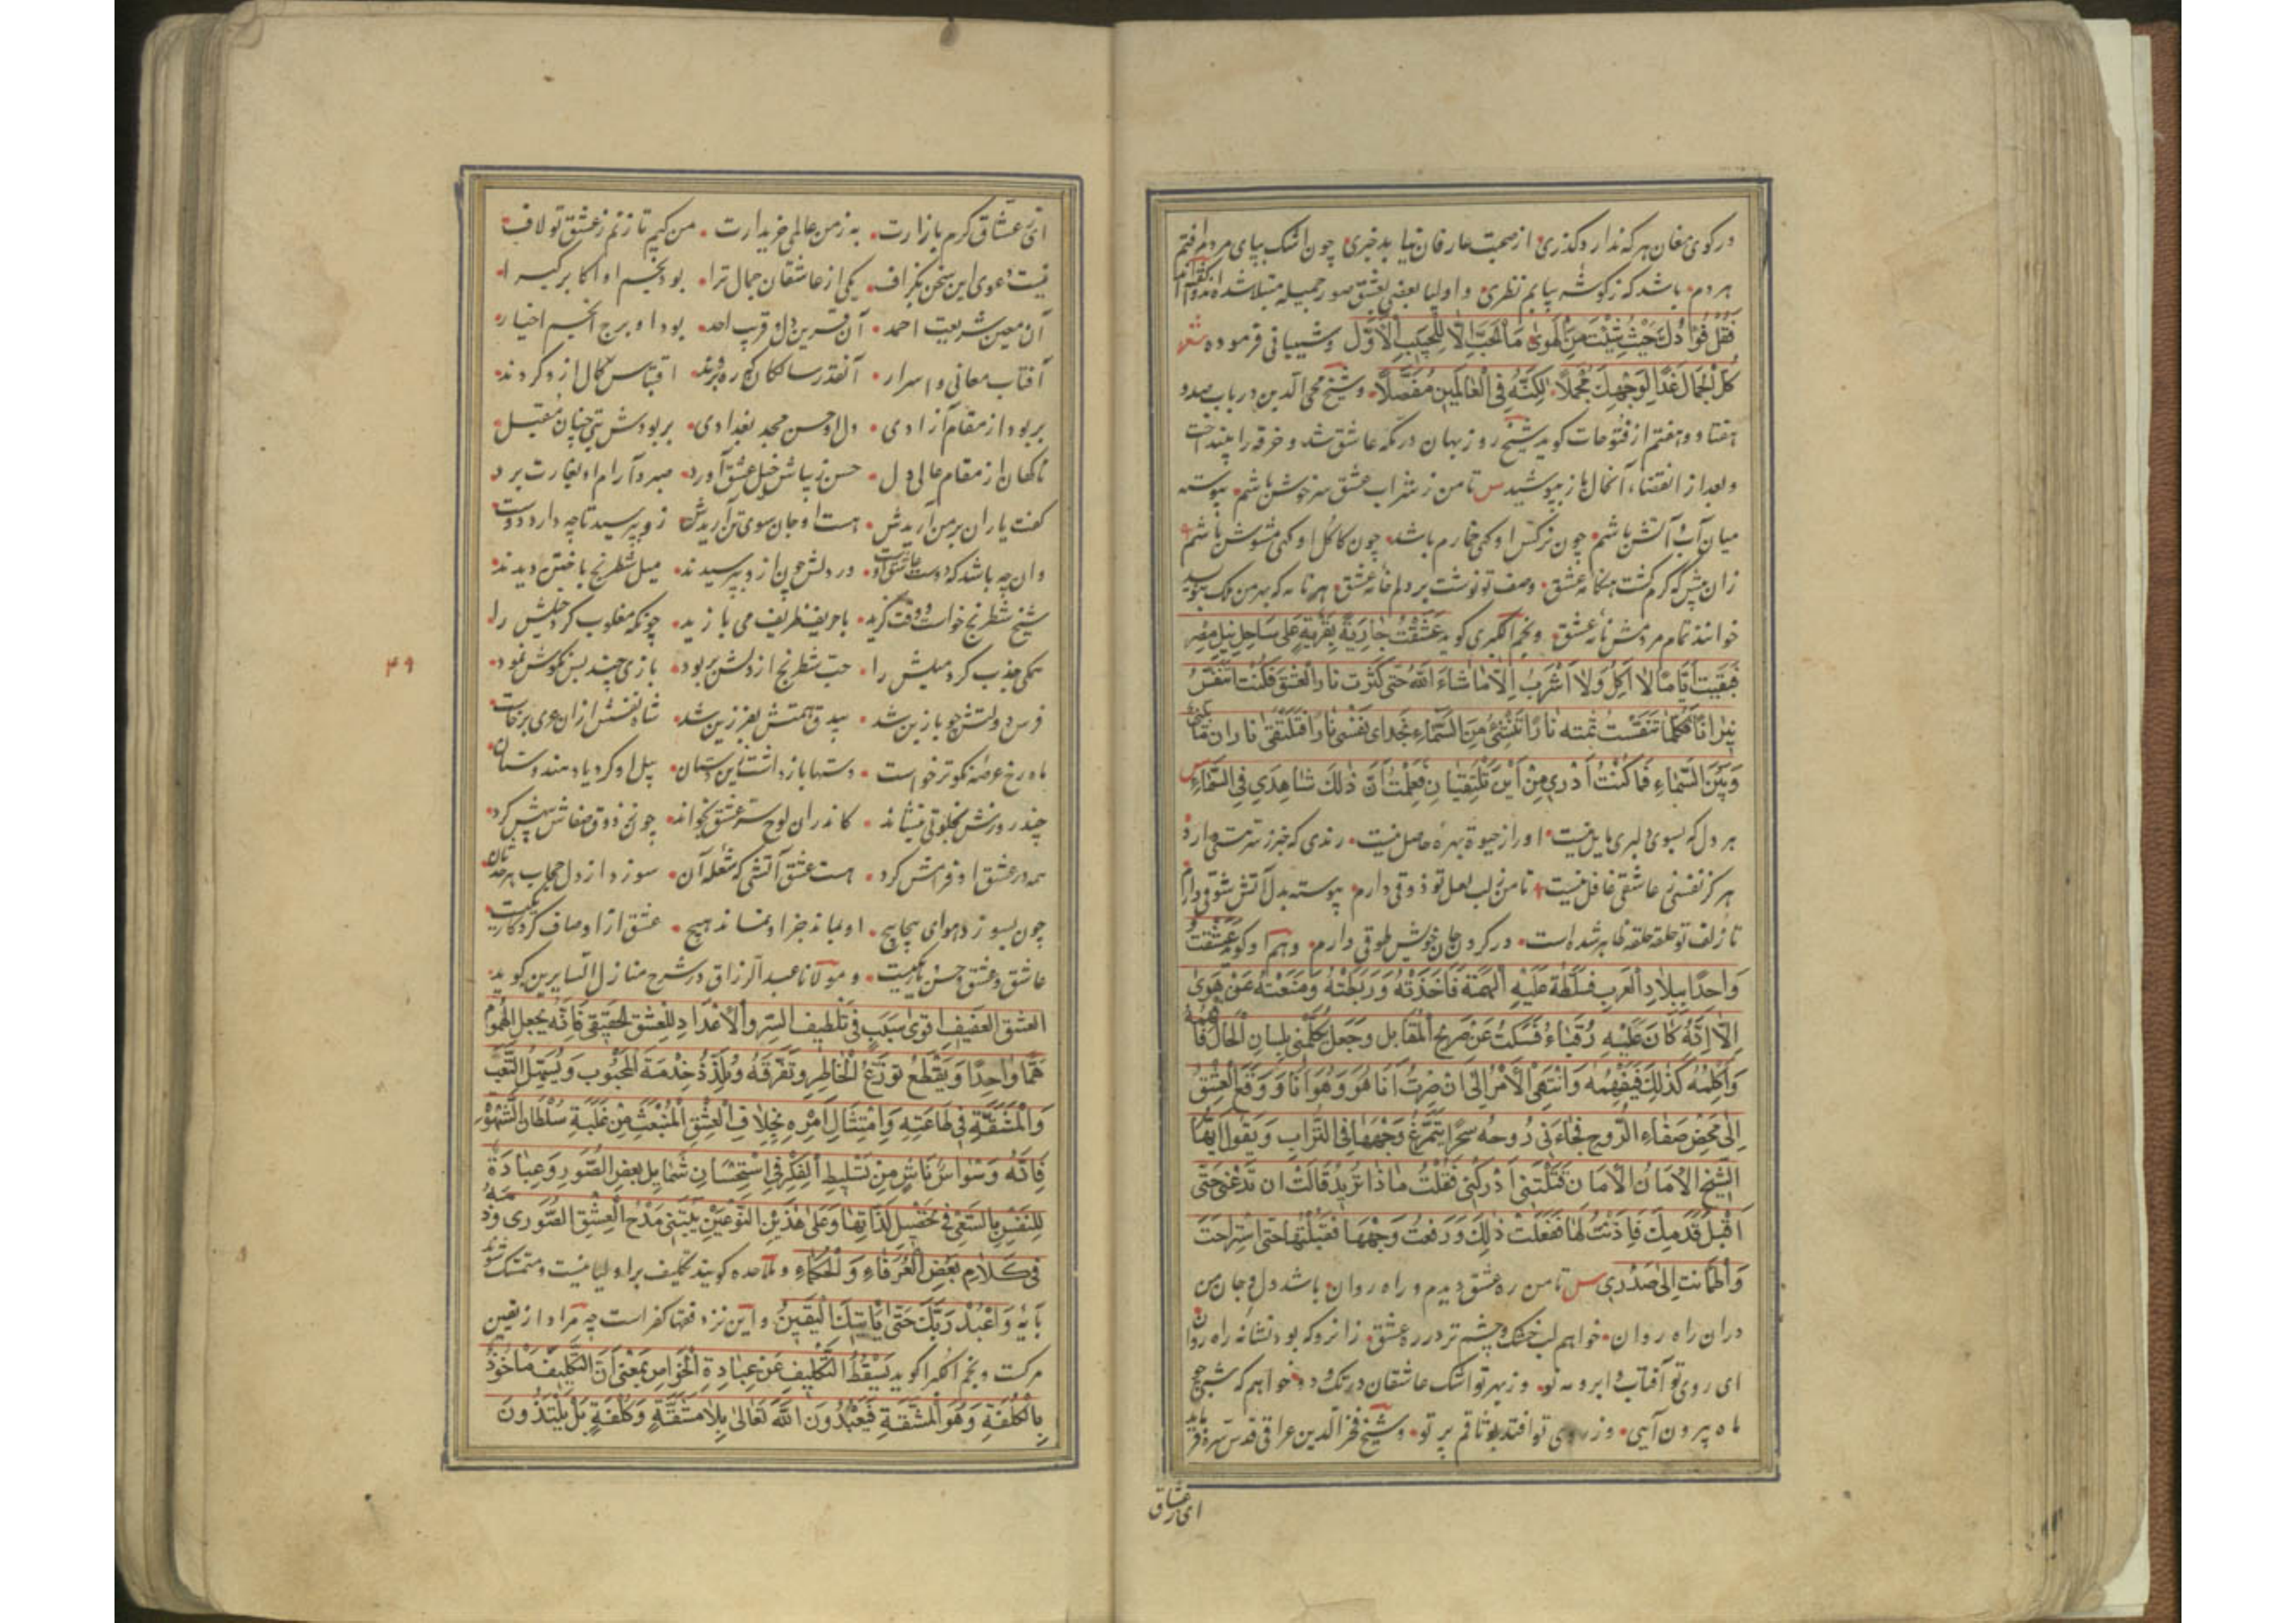 در کوی مغان هر که ندارد گذری از صحبت عارفان نیابد خبری چون اشک بپای مردم افتم
هر دم باشد که ز گوشه بیابم نظری و اولیا بعضی بعشق صور جمیله مبتلا شده اند
نَقِّل فُؤادَكَ حَیْثُ شِئْتَ مِنَ الْهَوی مَا الْحُبُّ اِلّا لِلْحَبیبِ الْاَوَّلِ و شیبانی فرموده شعر
كُلُّ الْجَمَالِ غَدَا لِوَجْهِكَ مُجْمَلًا لٰكِنَّهُ فِی الْعَالَمِینَ مُفَصَّلًا و شیخ محی الدین در باب صد و
هفتاد و هفتم از فتوحات کوید شیخ روزبهان در مکه عاشق شد و خرقه را بینداخت
و بعد از انقضاء آنحال باز بپوشید س تا من ز شراب عشق سرخوش باشم پیوسته
میان آب و آتش باشم چون نرکس او کهی خمارم باشد چون کاکل او کهی مشوش باشم
زان پیش که کرم کشت هنکامه عشق وصف تو نوشت بر دلم خامه عشق هر نامه که بهر من ملک بنویسد
خوانند تمام مردمش نامه عشق و نجم الکبری کوید عَشِقْتُ جَارِیَةً بِقَرْیَةٍ عَلی سَاحِلِ نِیلِ مِصْرَ
فَبَقِیتُ اَیَّامًا لَا اٰكُلُ وَلَا اَشْرَبُ اِلَّا مَا شَاءَ اللّٰهُ حَتّی كَثُرَتْ نَارُ الْعِشْقِ فَكُنْتُ اَتَنَفَّسُ
نِیرَانًا فَكُلَّمَا تَنَفَّسْتُ نَارًا تَنَفَّسَ مِنَ السَّمَاءِ بِحِذَاءِ نَفَسِی نَارًا فَتَلْتَقِی نَارَانِ مَا بَیْنِی
وَبَیْنَ السَّمَاءِ فَمَا كُنْتُ اَدْرِی مِنْ اَیْنَ تَلْتَقِیَانِ فَعَلِمْتُ اَنَّ ذٰلِكَ شَاهِدِی فِی السَّمَاءِ س
هر دل که بسوی دلبری مایل نیست او را ز حیوة بهره حاصل نیست رندی که خبر ز سر مستی دارد
هرکز نفسی ز عاشقی غافل نیست تا من ز لب لعل تو ذوقی دارم پیوسته بدل آتش شوقی دارم
تا زلف تو حلقه حلقه ظاهر شده است در کردن جان خویش طوقی دارم و هم او کوید عَشِقْتُ
وَاحِدًا بِبِلَادِ الْعَرَبِ فَسَلَّطْتُ عَلَیْهِ الْهِمَّةَ فَاَخَذْتُهُ وَرَبَطْتُهُ وَمَنَعْتُهُ عَنْ هَوی
اِلَّا اَنَّهُ كَانَ عَلَیْهِ رُقَبَاءُ فَسَكَتَ عَنْ صَرِیحِ الْمَقَابِلِ وَجَعَلَ یُكَلِّمُنِی بِلِسَانِ الْحَالِ فَاَفْهَمُهُ
وَاُكَلِّمُهُ كَذٰلِكَ فَیَفْهَمُهُ وَانْتَهَی الْاَمْرُ اِلی اَنْ صِرْتُ اَنَا هُوَ وَهُوَ اَنَا وَوَقَعَ الْعِشْقُ
اِلی مَحْضِ صَفَاءِ الرُّوحِ فَجَاءَنِی رُوحُهُ سَحَرًا یَتَمَرَّغُ وَجْهَهَا فِی التُّرَابِ وَیَقُولُ اَیُّهَا
الشَّیْخُ الْاَمَانَ الْاَمَانَ قَتَلْتَنِی اَدْرِكْنِی فَقُلْتُ مَاذَا تُرِیدُ قَالَتْ اَنْ تَدَعَنِی حَتّی
اُقَبِّلَ قَدَمَیْكَ فَاَذِنْتُ لَهَا فَفَعَلَتْ ذٰلِكَ وَرَفَعَتْ وَجْهَهَا فَقَبَّلْتُهَا حَتّی اسْتَرَاحَتْ
وَاطْمَانَتْ اِلی صَدْرِی س تا من ره عشق دیدم و راه روان باشد دل و جان من
دران راه روان خواهم لب خشک و چشم تر در ره عشق زانرو که بود نشانه راه روان
ای روی تو آفتاب و ابرو مه نو وز بهر تو اشک عاشقان در تک و دو خواهم که شبی چو
ماه بیرون آیی وز روی تو افتد بوثاقم پرتو و شیخ فخر الدین عراقی قدس سره فرماید
ای ز عشاق
ای ز عشاق کرم بازارت به ز من عالمی خریدارت من کیم تا زنم ز عشق تو لاف
نیست دعوی این سخن بکزاف یکی از عاشقان جمال ترا بود نجم او اکابر کبرا
آن معین شریعت احمد آن قرین دل و قریب احد بود او برج انجم اخیار
آفتاب معانی و اسرار آنقدر سالکان که ره بردند اقتباس کمال ازو کردند
بربود از مقام آزادی دل او حسن مجد بغدادی بربودش بتی چنان مقبل
ناکهان از مقام عالی دل حسن زیباش خیل عشق آورد صبر و آرام او بغارت برد
کفت یاران بر من آریدش هست او جان سوی تن آریدش زو بپرسید تا چه دارد دوست
وان چه باشد که دوست عاشق اوست در دلش چون ازو بپرسیدند میل شطرنج باختن دیدند
شیخ شطرنج خواست و وقت کزید با حریف ظریف می بازید چونکه مغلوب کرد خیلش را
همکی جذب کرد میلش را حب شطرنج از دلش بربود بازی چند بس نکوش نمود
فرس دولتش چو بازین شد بیدق همتش بفرزین شد شاه نفسش ازان عری برخاست
ماه رخ عرصه نکوتر خواست دستها باز داشت زین دستان پیل او کرد یاد هندوستان
چند روزش بخلوتی بنشاند کاندران لوح سر عشق بخواند چونکه ذوق صفاش پیش کرد
همه در عشق او فرامش کرد هست عشق آتشی که شعله آن سوزد از دل حجاب هر حدثان
چون بسوزد هوای پیچاپیچ او بماند جز او نماند هیچ عشق از اوصاف کردکار یکیست
عاشق و عشق و حسن یار یکیست و مولانا عبد الرزاق در شرح منازل السایرین کوید
الْعِشْقُ الْعَفِیفُ اَقْوی سَبَبٍ فِی تَلْطِیفِ السِّرِّ وَالْاِعْدَادِ لِلْعِشْقِ الْحَقِیقِی فَاِنَّهُ یَجْعَلُ الْهُمُومَ
هَمًّا وَاحِدًا وَیَقْطَعُ تَوَزُّعَ الْخَاطِرِ وَتَفَرُّقَهُ وَیُلَذِّذُ خِدْمَةَ الْمَحْبُوبِ وَیُسَهِّلُ التَّعَبَ
وَالْمَشَقَّةَ فِی طَاعَتِهِ وَامْتِثَالِ اَمْرِهِ بِخِلَافِ الْعِشْقِ الْمُنْبَعِثِ مِنْ غَلَبَةِ سُلْطَانِ الشَّهْوَةِ
فَاِنَّهُ وَسْوَاسٌ نَاشٍ مِنْ تَسْلِیطِ الْفِكْرِ فِی اسْتِحْسَانِ شَمَایِلِ بَعْضِ الصُّوَرِ وَعِبَادَةٌ
لِلنَّفْسِ بِالسَّعْیِ فِی تَحْصِیلِ لَذَّاتِهَا وَعَلی هٰذَیْنِ النَّوْعَیْنِ یَبْتَنِی مَدْحُ الْعِشْقِ الصُّوَرِی وَذَمُّهُ
فِی كَلَامِ بَعْضِ الْعُرَفَاءِ وَالْحُكَمَاءِ و ملاحده کویند تکلیف بر اولیا نیست و متمسک شوند
بآیه وَاعْبُدْ رَبَّكَ حَتّی یَاْتِیَكَ الْیَقِینُ و این نزد فقها کفر است چه مراد از یقین
مرکست و نجم الکبرا کوید یَسْقُطُ التَّكْلِیفُ عَنْ عِبَادَةِ الْخَوَاصِّ بِمَعْنی اَنَّ التَّكْلِیفَ مَاخُوذٌ
بِالْكُلْفَةِ وَهُوَ الْمَشَقَّةُ فَیَعْبُدُونَ اللّٰهَ تَعَالی بِلَا مَشَقَّةٍ وَكُلْفَةٍ بَلْ یَلْتَذُّونَ
۴۹